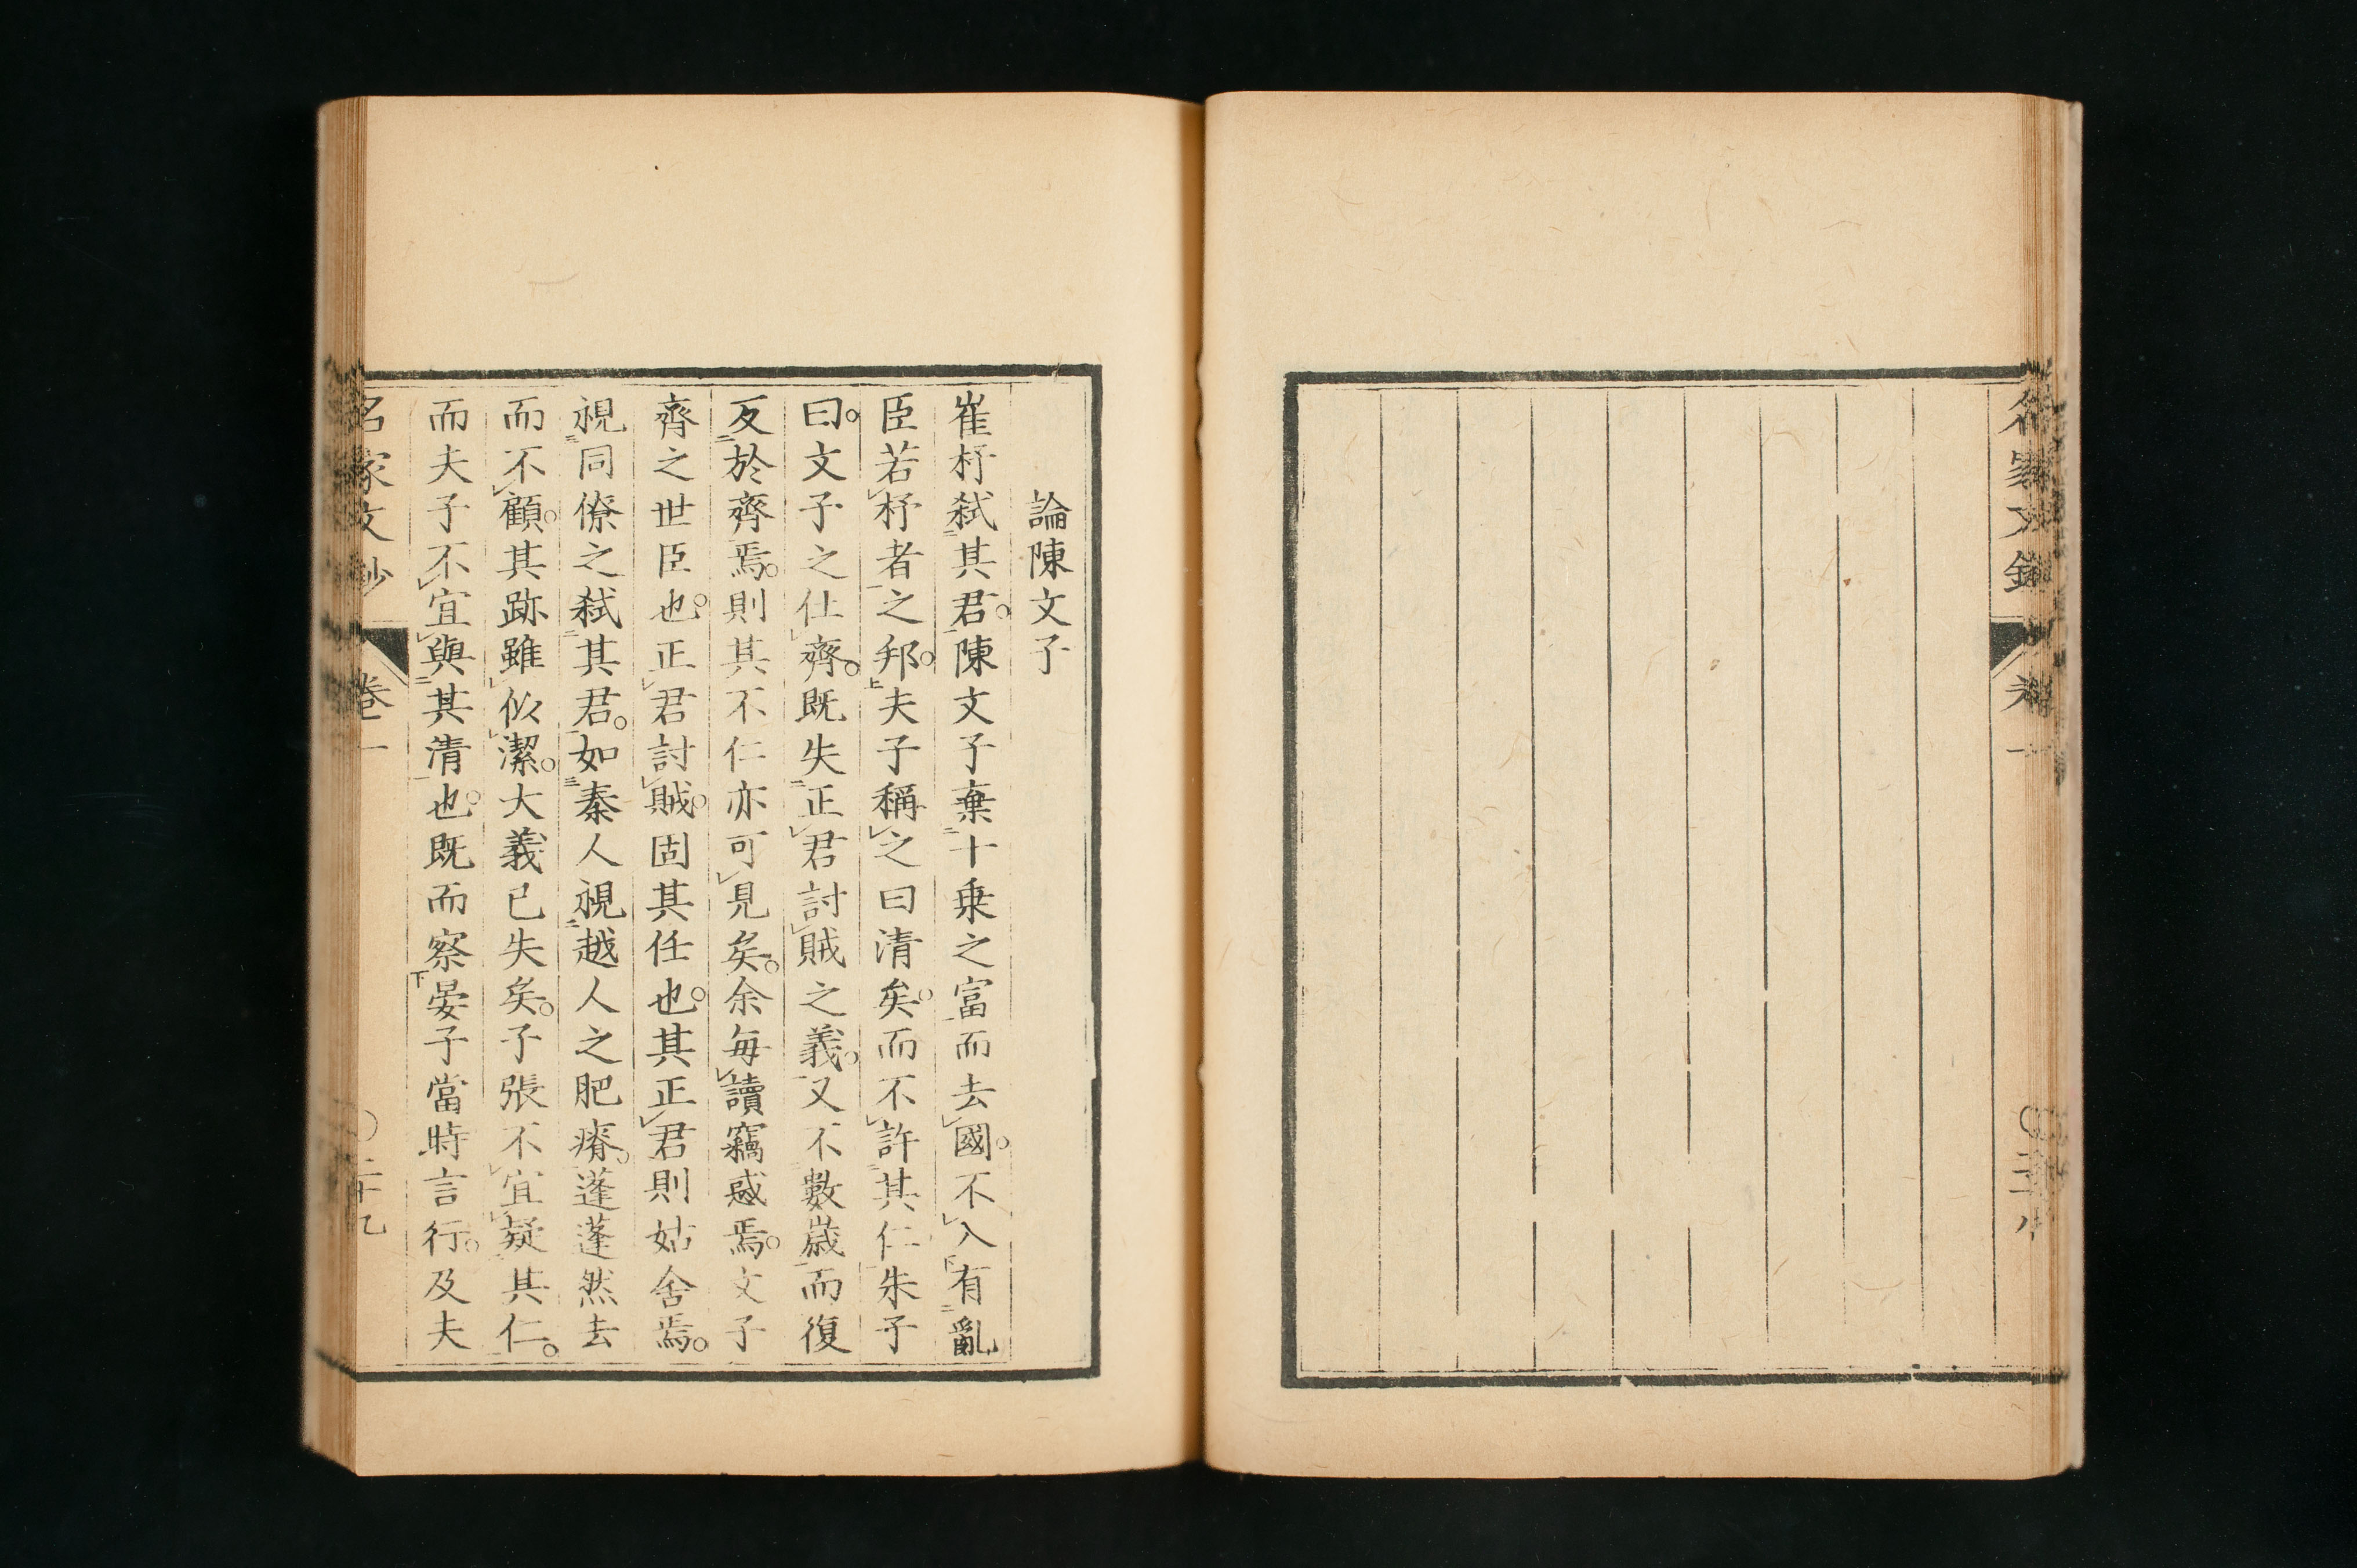 論陳文子
崔杼弑其君。陳文子棄十乗之富而去國。不入有亂
臣若杼者之邦。夫子稱之曰清矣。而不許其仁朱子
曰。文子之仕齊。既失正君討賊之義。又不數歳而復
反於齊焉。則其不仁亦可見矣。余毎讀竊惑焉。文子
齊之世臣也。正君討賊。固其任也。其正君則姑舍焉。
視同僚之弑其君。如秦人視越人之肥瘠。蓬蓬然去
而不顧。其跡雖似潔。大義已失矣。子張不宜疑其仁。
而夫子不宜與其清也。既而察晏子當時言行。及夫
名家文鈔 卷一 〇二十九